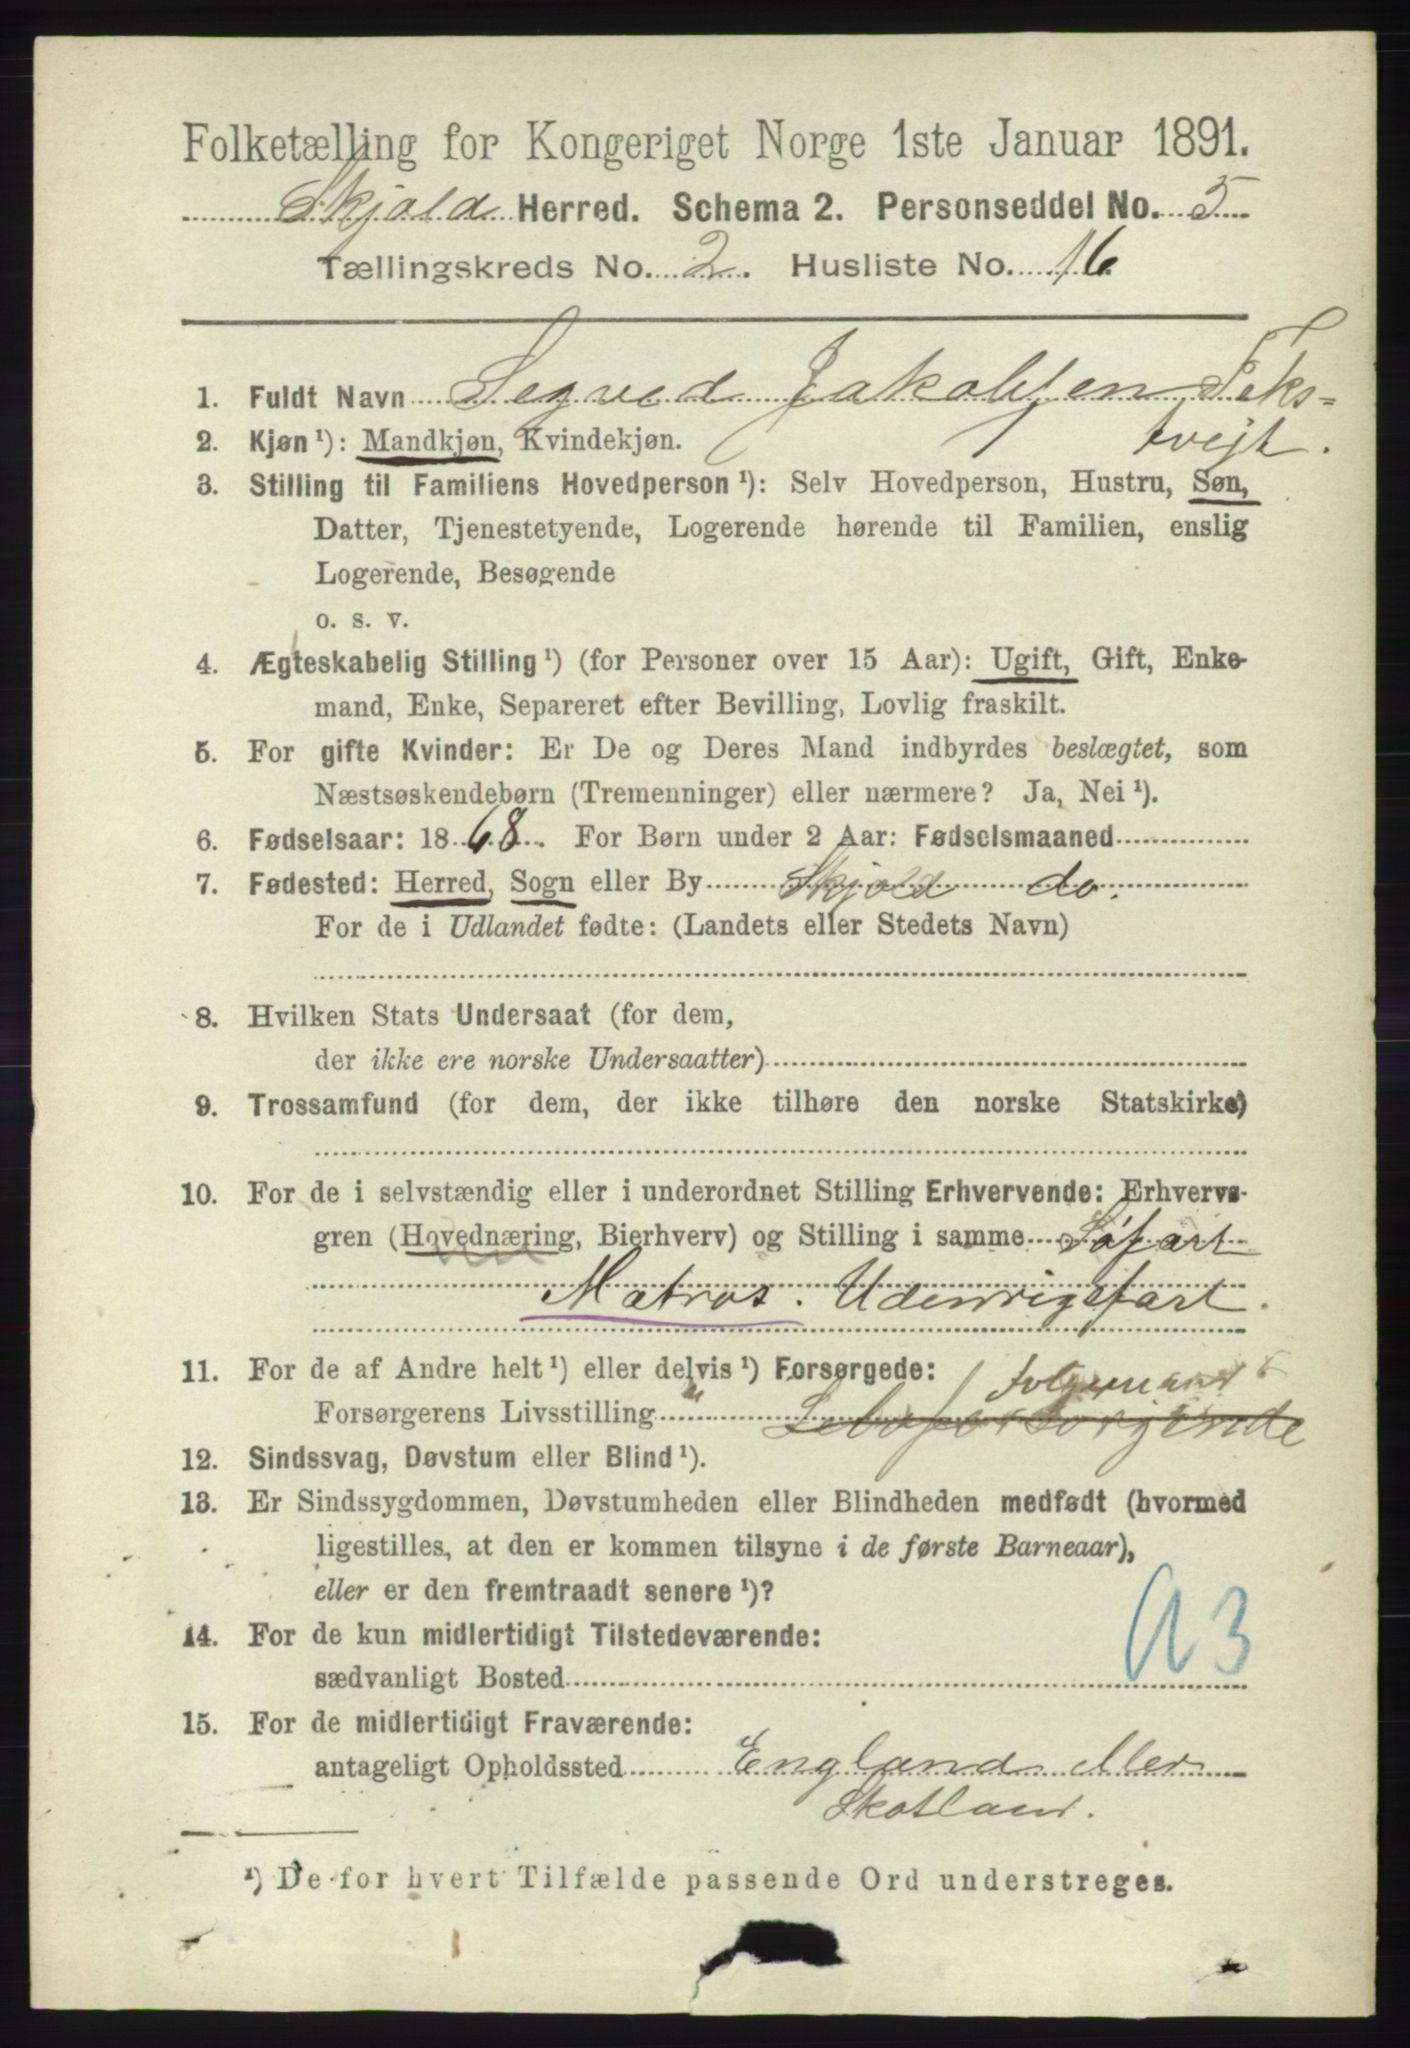 Folketælling for Kongeriget Norge 1ste Januar 1891.
Skjold Herred. Schema 2. Personseddel No. 5
Tællingskreds No. 2. Husliste No. 16
1. Fuldt Navn Segved Jakobsen Teks=
tvejt.
2. Kjøn ¹): Mandkjøn, Kvindekjøn.
3. Stilling til Familiens Hovedperson ¹): Selv Hovedperson, Hustru, Søn,
Datter, Tjenestetyende, Logerende hørende til Familien, enslig
Logerende, Besøgende
o. s. v.
4. Ægteskabelig Stilling ¹) (for Personer over 15 Aar): Ugift, Gift, Enke-
mand, Enke, Separeret efter Bevilling, Lovlig fraskilt.
5. For gifte Kvinder: Er De og Deres Mand indbyrdes beslægtet, som
Næstsøskendebørn (Tremenninger) eller nærmere? Ja, Nei ¹).
6. Fødselsaar: 1868. For Børn under 2 Aar: Fødselsmaaned
7. Fødested: Herred, Sogn eller By Skjold do.
For de i Udlandet fødte: (Landets eller Stedets Navn)
8. Hvilken Stats Undersaat (for dem,
der ikke ere norske Undersaatter)
9. Trossamfund (for dem, der ikke tilhøre den norske Statskirke)
10. For de i selvstændig eller i underordnet Stilling Erhvervende: Erhvervs-
gren (Hovednæring, Bierhverv) og Stilling i samme Søfart
Matros. Udenrigsfart.
11. For de af Andre helt ¹) eller delvis ¹) Forsørgede:
Forsørgerens Livsstilling Selvforsørjende
12. Sindssvag, Døvstum eller Blind ¹).
13. Er Sindssygdommen, Døvstumheden eller Blindheden medfødt (hvormed
ligestilles, at den er kommen tilsyne i de første Barneaar),
eller er den fremtraadt senere ¹)?
14. For de kun midlertidigt Tilstedeværende:
sædvanligt Bosted
a 3
15. For de midlertidigt Fraværende:
antageligt Opholdssted England eller
Skotland.
¹) De for hvert Tilfælde passende Ord understreges.